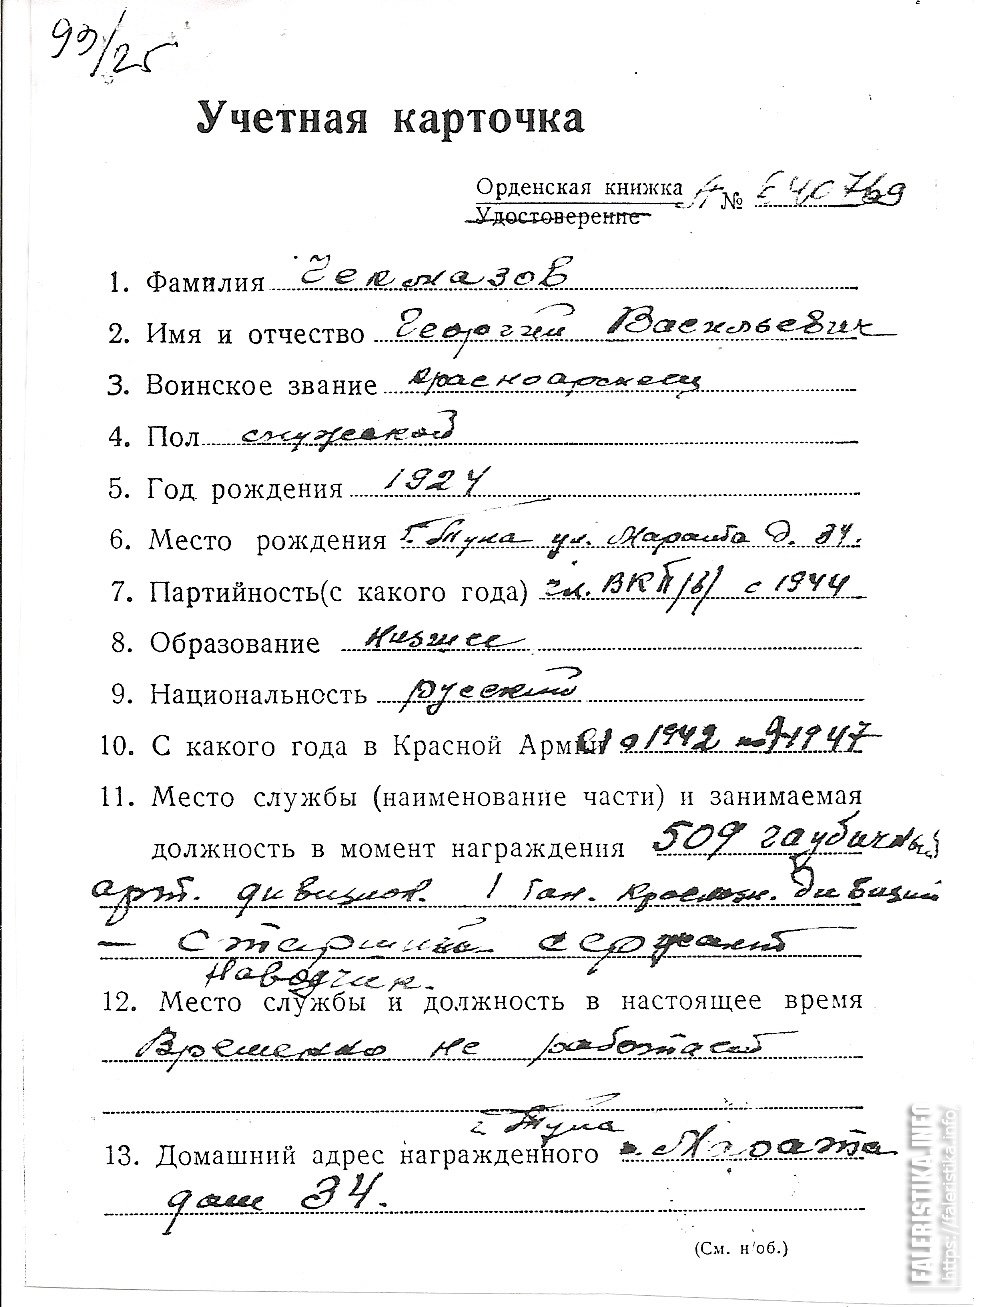 93/25
Учетная карточка
Орденская книжка А № 640769
Удостоверение
1. Фамилия Чекмазов
2. Имя и отчество Георгий Васильевич
3. Воинское звание красноармеец
4. Пол мужской
5. Год рождения 1924
6. Место рождения г. Тула ул. Марата д. 34.
7. Партийность(с какого года) чл. ВКП/б/ с 1944
8. Образование низшее
9. Национальность русский
10. С какого года в Красной Армии 1942 1947
11. Место службы (наименование части) и занимаемая
должность в момент награждения 509 гаубичный
арт. дивизион. 1 Тан. Краснозн. дивизии
— Старший сержант
Наводчик.
12. Место службы и должность в настоящее время
Временно не работает
г. Тула
13. Домашний адрес награжденного Марата
дом 34.
(См. н/об.)
FALERISTIKA.INFO
https://faleristika.info